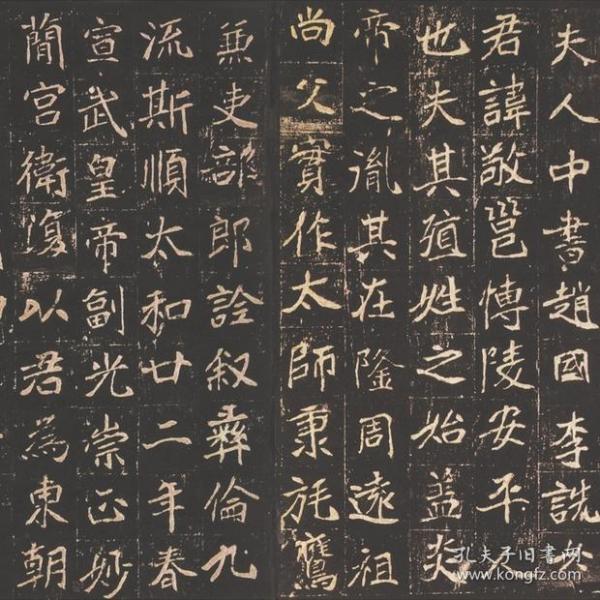 夫人中書趙國李詵女
君諱敬邕博陵安平人
也夫其殖姓之始蓋炎
帝之胤其在隆周遠祖
尚父實作太師秉旄鷹
兼吏部郎詮叙彝倫九
流斯順太和廿二年春
宣武皇帝副光崇正妙
簡宮衛復以君為東朝
孔夫子旧书网
www.kongfz.com